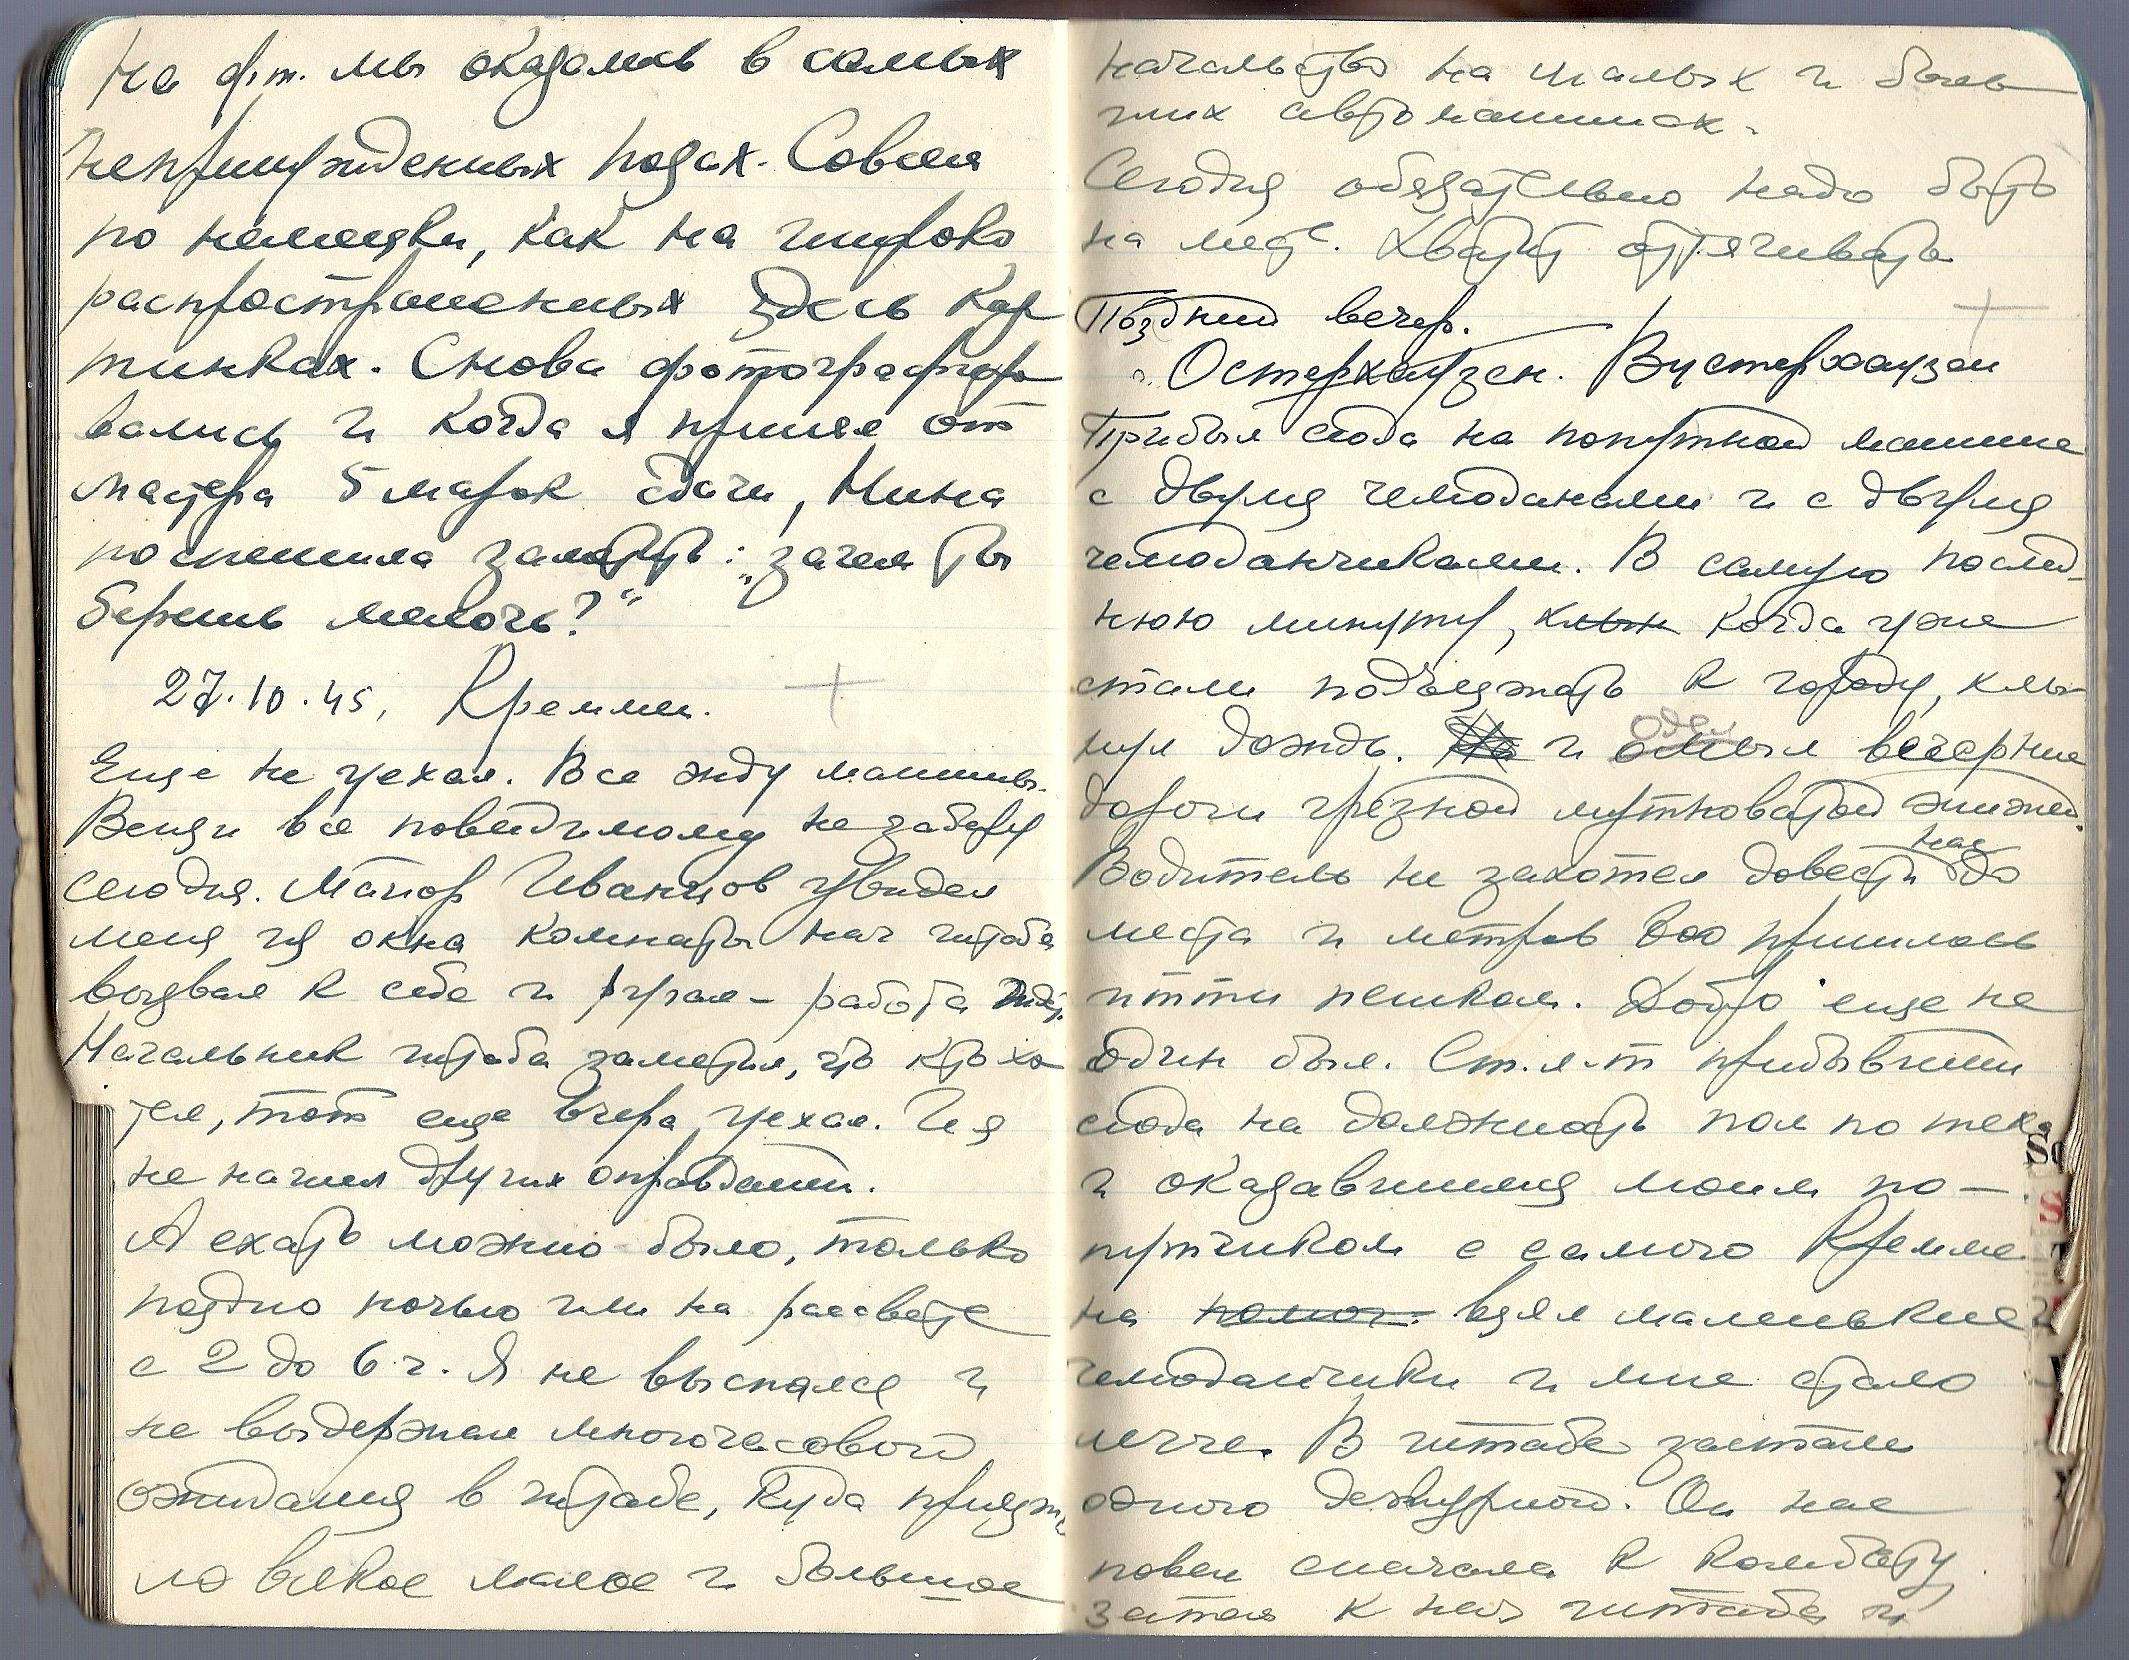 На фт. мы оказались в самых
непринужденных позах. Совсем
по немецки, как на широко
распространенных здесь кар
тинках. Снова фотографиро
вались и когда я принял от
мастера 5 марок сдачи, Нина
поспешила заметить: „зачем ты
берешь мелочь?“
27.10.45, Креммен.
Еще не уехал. Все жду машины.
Вещи все повидимому не заберу
сегодня. Майор Иванцов увидел
меня из окна комнаты нач штаба
вызвал к себе и ругал – работа
Начальник штаба заметил, что кто хо
тел, тот еще вчера уехал. И я
не нашел других оправданий.
А ехать можно было, только
поздно ночью или на рассвете
с 2 до 6 ч. Я не выспался и
не выдержал многочасового
ожидания в штабе, куда приезжа
ло всякое малое и большое
начальство на малых и боль
ших автомашинах.
Сегодня обязательно надо быть
на месте. Хватит оттягивать
Поздний вечер.
Остерхаузен. Вустерхаузен
Прибыл сюда на попутной машине
с двумя чемоданами и с двумя
чемоданчиками. В самую послед-
нюю минуту, хлын когда уже
стали подъезжать к городу, хлы-
нул дождь. и омыл вечерние
дороги грязной мутноватой жижей.
нас
Водитель не захотел довести до
места и метров 800 пришлось
итти пешком. Добро еще не
один был. Ст. л-т прибывший
сюда на должность пом по тех.
и оказавшимся моим по–
путчиком с самого Кремме
на помог. взял маленькие
чемоданчики и мне стало
легче. В штабе застали
одного дежурного. Он нас
повел сначала к комбату
затем к нач штаба и